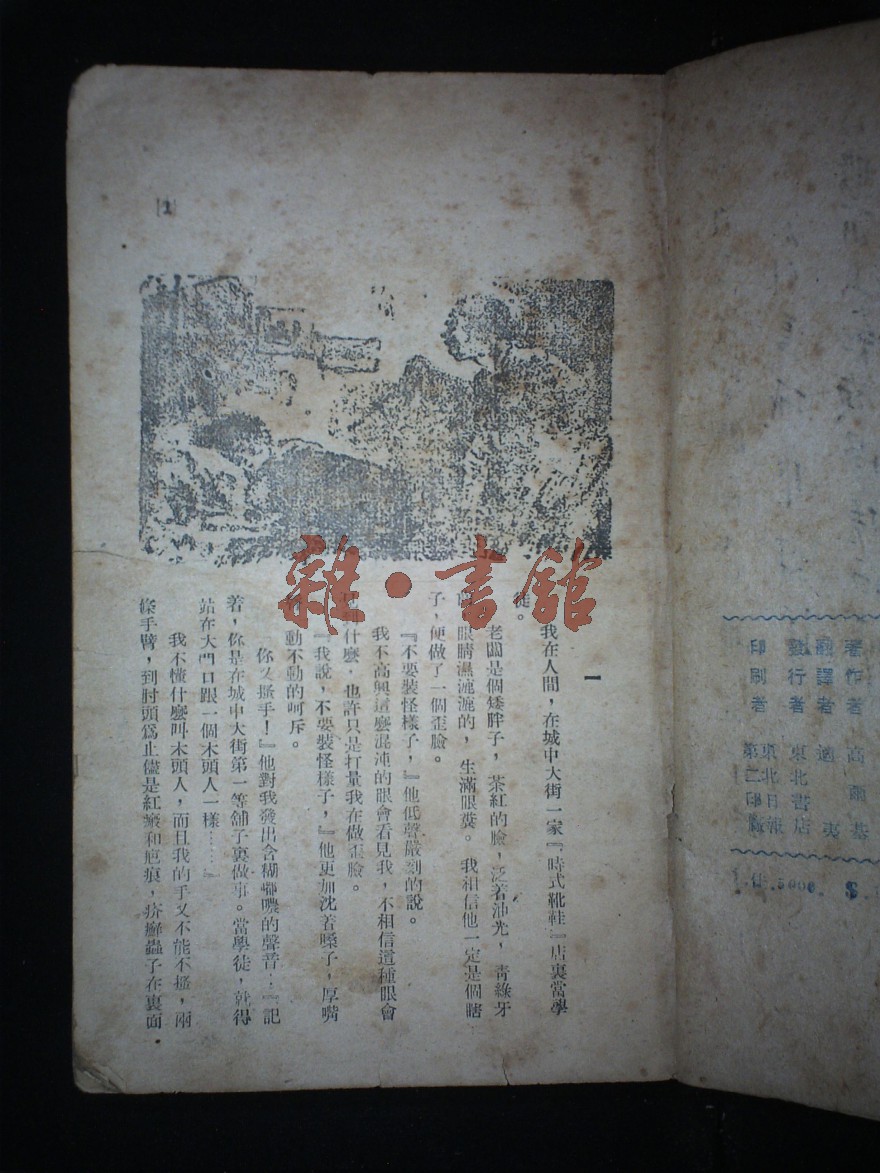 [1]
一
我在人間，在城中大街一家『時式靴鞋』店裏當學
徒。
老闆是個矮胖子，茶紅的臉，泛着油光，靑綠牙
眼睛濕漉漉的，生滿眼糞。我相信他一定是個瞎
子，便做了一個歪臉。
『不要裝怪樣子，』他低聲嚴刻的說。
我不高興這麼混沌的眼會看見我，不相信這種眼會
什麼，也許只是打量我在做歪臉。
『我說，不要裝怪樣子，』他更加沈着嗓子，厚嘴
動不動的呵斥。
你又搔手！』他對我發出含糊嘟噥的聲音：『記
着，你是在城中大街第一等舖子裏做事。當學徒，就得
站在大門口跟一個木頭人一樣……』
我不懂什麼叫木頭人，而且我的手又不能不搔，兩
條手臂，到肘頭爲止儘是紅瘢和疤痕，疥癬蟲子在裏面
雜·書館
著作者 高爾基
翻譯者 適夷
發行者 東北書店
印刷者 東北日報第二印廠
5000